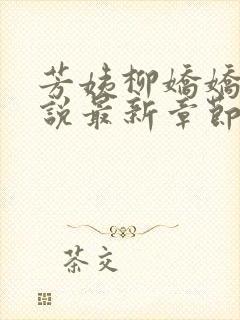 芳姨柳嬌嬌
說最新章節
茶交